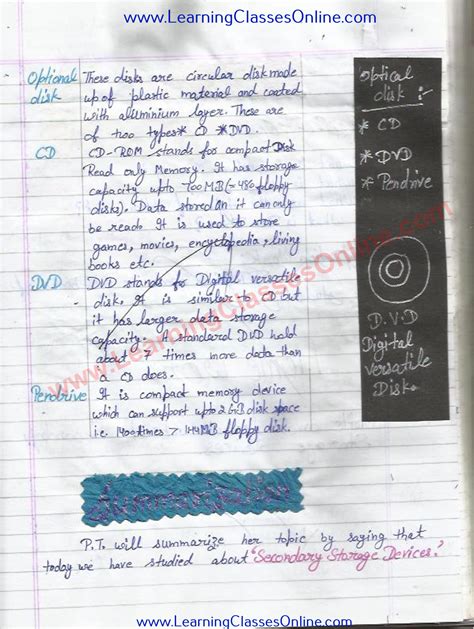 www.LearningClassesOnline.com
Optional disk
These disks are circular disk made
up of plastic material and coated
with aluminium layer. These are
of two types * CD * DVD.
CD
CD-ROM stands for compact Disk
Read only Memory. It has storage
capacity upto 700 MB (= 486 floppy
disks). Data stored on it can only
be read. It is used to store
games, movies, encyclopedia, living
books etc.
DVD
DVD stands for Digital versatile
disk. It is similar to CD but
it has larger data storage
capacity. A standard DVD hold
about 7 times more data than
a CD does.
Pendrive
It is compact memory device
which can support upto 2 GB disk space
i.e. 1400 times > 1.44MB floppy disk.
Optical
disk :-
* CD
* DVD
* Pendrive
D.V.D
Digital
versatile
Disk
www.LearningClassesOnline.com
www.LearningClassesOnline.com
Summarization
P.T. will summarize her topic by saying that
today we have studied about 'Secondary Storage Devices.'
www.LearningClassesOnline.com